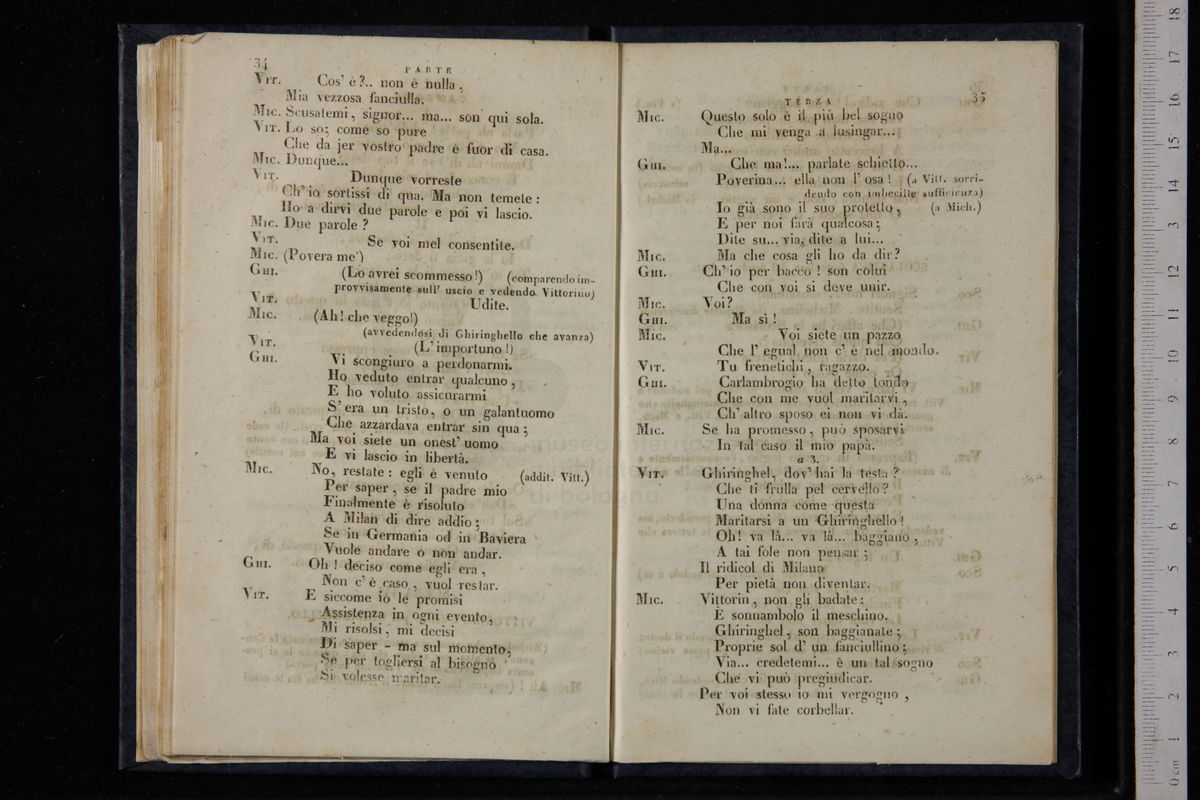 34
PARTE
VIT. Cos' è?.. non è nulla,
Mia vezzosa fanciulla.
MIC. Scusatemi, signor... ma... son qui sola.
VIT. Lo so; come so pure
Che da jer vostro padre è fuor di casa.
MIC. Dunque...
VIT. Dunque vorreste
Ch' io sortissi di qua. Ma non temete:
Ho a dirvi due parole e poi vi lascio.
MIC. Due parole?
VIT. Se voi mel consentite.
MIC. (Povera me')
GHI. (Lo avrei scommesso!) (comparendo im-
provvisamente sull' uscio e vedendo Vittorino)
VIT. Udite.
MIC. (Ah! che veggo!)
(avvedendosi di Ghiringhello che avanza)
VIT. (L' importuno!)
GHI. Vi scongiuro a perdonarmi.
Ho veduto entrar qualcuno,
E ho voluto assicurarmi
S' era un tristo, o un galantuomo
Che azzardava entrar sin qua;
Ma voi siete un onest' uomo
E vi lascio in libertà.
MIC. No, restate: egli è venuto (addit. Vitt.)
Per saper, se il padre mio
Finalmente è risoluto
A Milan di dire addio;
Se in Germania od in Baviera
Vuole andare o non andar.
GHI. Oh! deciso come egli era,
Non c' è caso, vuol restar.
VIT. E siccome io le promisi
Assistenza in ogni evento,
Mi risolsi, mi decisi
Di saper - ma sul momento,
Se per togliersi al bisogno
Si volesse maritar.
TERZA
35
MIC. Questo solo è il più bel sogno
Che mi venga a lusingar...
Ma...
GHI. Che ma!... parlate schietto...
Poverina... ella non l' osa! (a Vitt. sorri-
dendo con imbecille sufficienza)
Io già sono il suo protetto, (a Mich.)
E per noi farà qualcosa;
Dite su... via, dite a lui...
MIC. Ma che cosa gli ho da dir?
GHI. Ch' io per bacco! son colui
Che con voi si deve unir.
MIC. Voi?
GHI. Ma sì!
MIC. Voi siete un pazzo
Che l' egual non c' è nel mondo.
VIT. Tu frenetichi, ragazzo.
GHI. Carlambrogio ha detto tondo
Che con me vuol maritarvi,
Ch' altro sposo ei non vi dà.
MIC. Se ha promesso, può sposarvi
In tal caso il mio papà.
a 3.
VIT. Ghiringhel, dov' hai la testa?
Che ti frulla pel cervello?
Una donna come questa
Maritarsi a un Ghiringhello!
Oh! va là... va là... baggiano,
A tai fole non pensar;
Il ridicol di Milano
Per pietà non diventar.
MIC. Vittorin, non gli badate:
È sonnambolo il meschino.
Ghiringhel, son baggianate;
Proprie sol d' un fanciullino;
Via... credetemi... è un tal sogno
Che vi può pregiudicar.
Per voi stesso io mi vergogno,
Non vi fate corbellar.